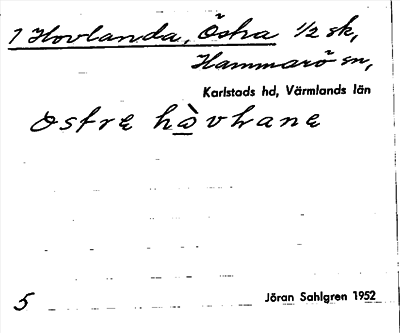 1 Hovlanda, Östra 1/2 sk,
Hammarö sn,
Karlstads hd, Värmlands län
ostrε hὰvlranε
5 Jöran Sahlgren 1952